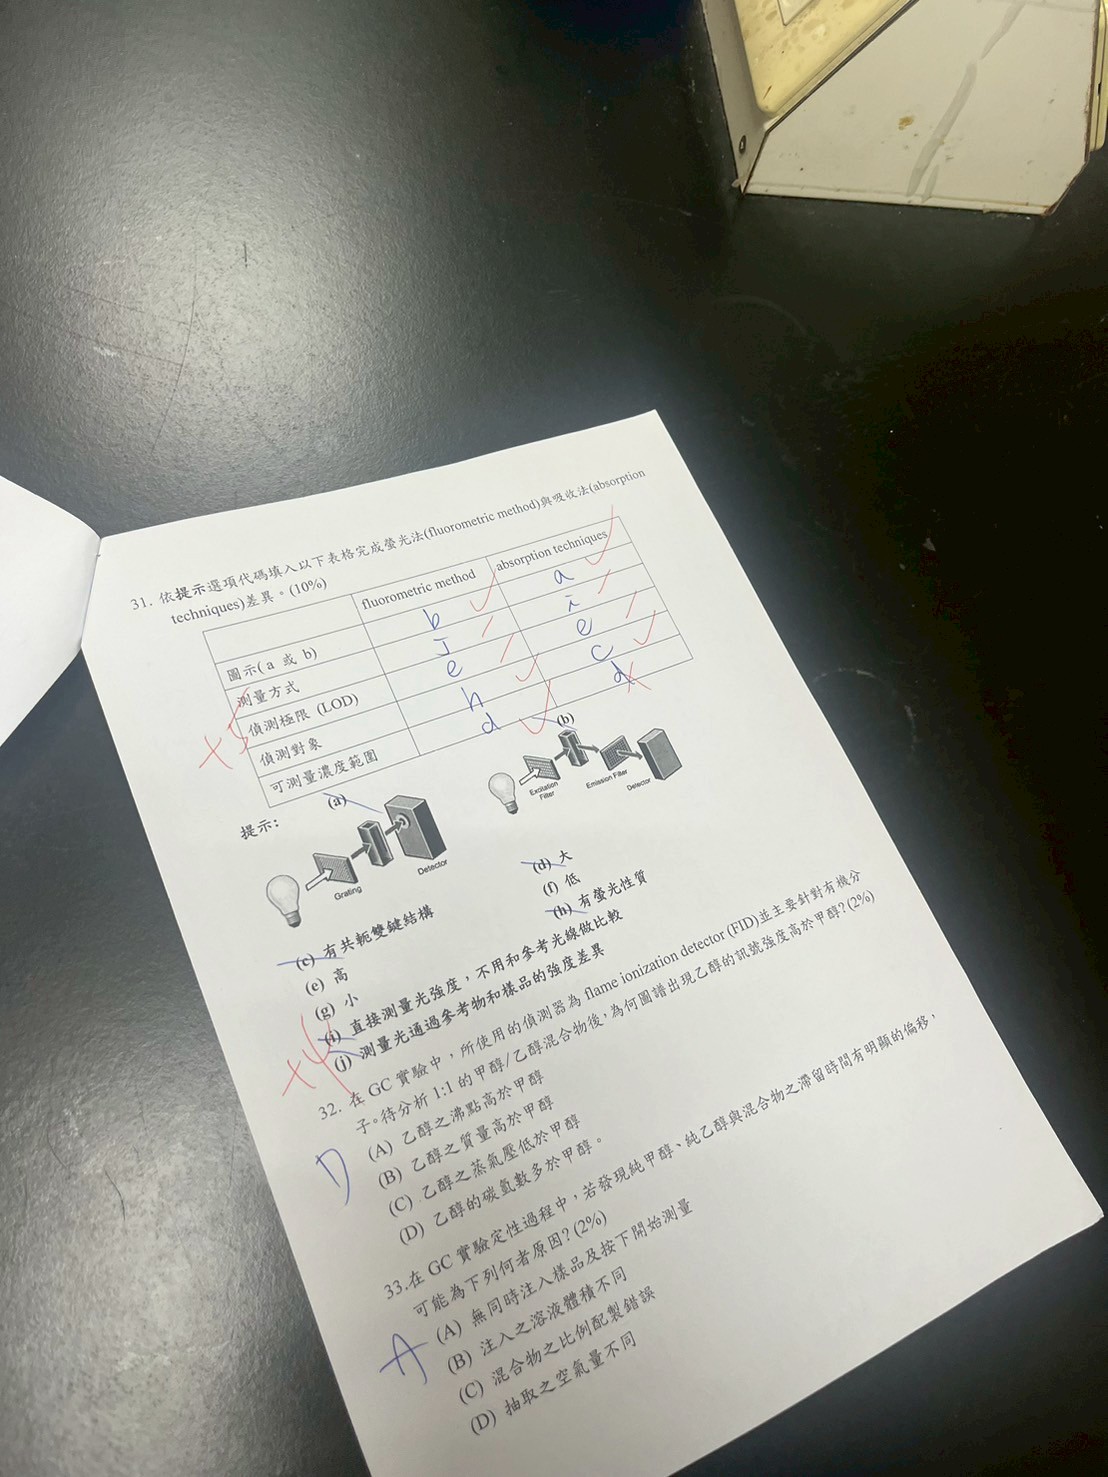 31. 依提示選項代碼填入以下表格完成螢光法(fluorometric method)與吸收法(absorption
techniques)差異。(10%)
fluorometric method absorption techniques
圖示(a 或 b) b a
測量方式 J i
偵測極限 (LOD) e e
偵測對象 h c
可測量濃度範圍 d d
+5
提示:
(a)
Grating
Detector
(b)
Excitation
Filter
Emission Filter
Detector
(c) 有共軛雙鍵結構
(d) 大
(e) 高
(f) 低
(g) 小
(h) 有螢光性質
(i) 直接測量光強度，不用和參考光線做比較
(j) 測量光通過參考物和樣品的強度差異
+4
32. 在 GC 實驗中，所使用的偵測器為 flame ionization detector (FID)並主要針對有機分
子。待分析 1:1 的甲醇/乙醇混合物後，為何圖譜出現乙醇的訊號強度高於甲醇? (2%)
D
(A) 乙醇之沸點高於甲醇
(B) 乙醇之質量高於甲醇
(C) 乙醇之蒸氣壓低於甲醇
(D) 乙醇的碳氫數多於甲醇。
33.在 GC 實驗定性過程中，若發現純甲醇、純乙醇與混合物之滯留時間有明顯的偏移，
可能為下列何者原因? (2%)
A
(A) 無同時注入樣品及按下開始測量
(B) 注入之溶液體積不同
(C) 混合物之比例配製錯誤
(D) 抽取之空氣量不同